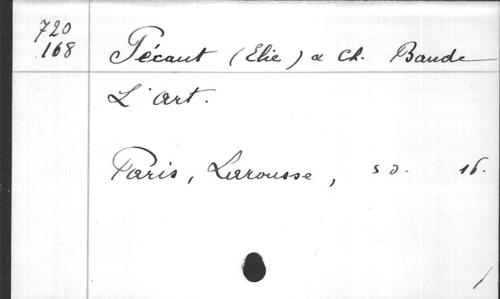 720
168
Pécaut (Elie) & Ch. Baude
L'art.
Paris, Larousse, s d. 16.
/